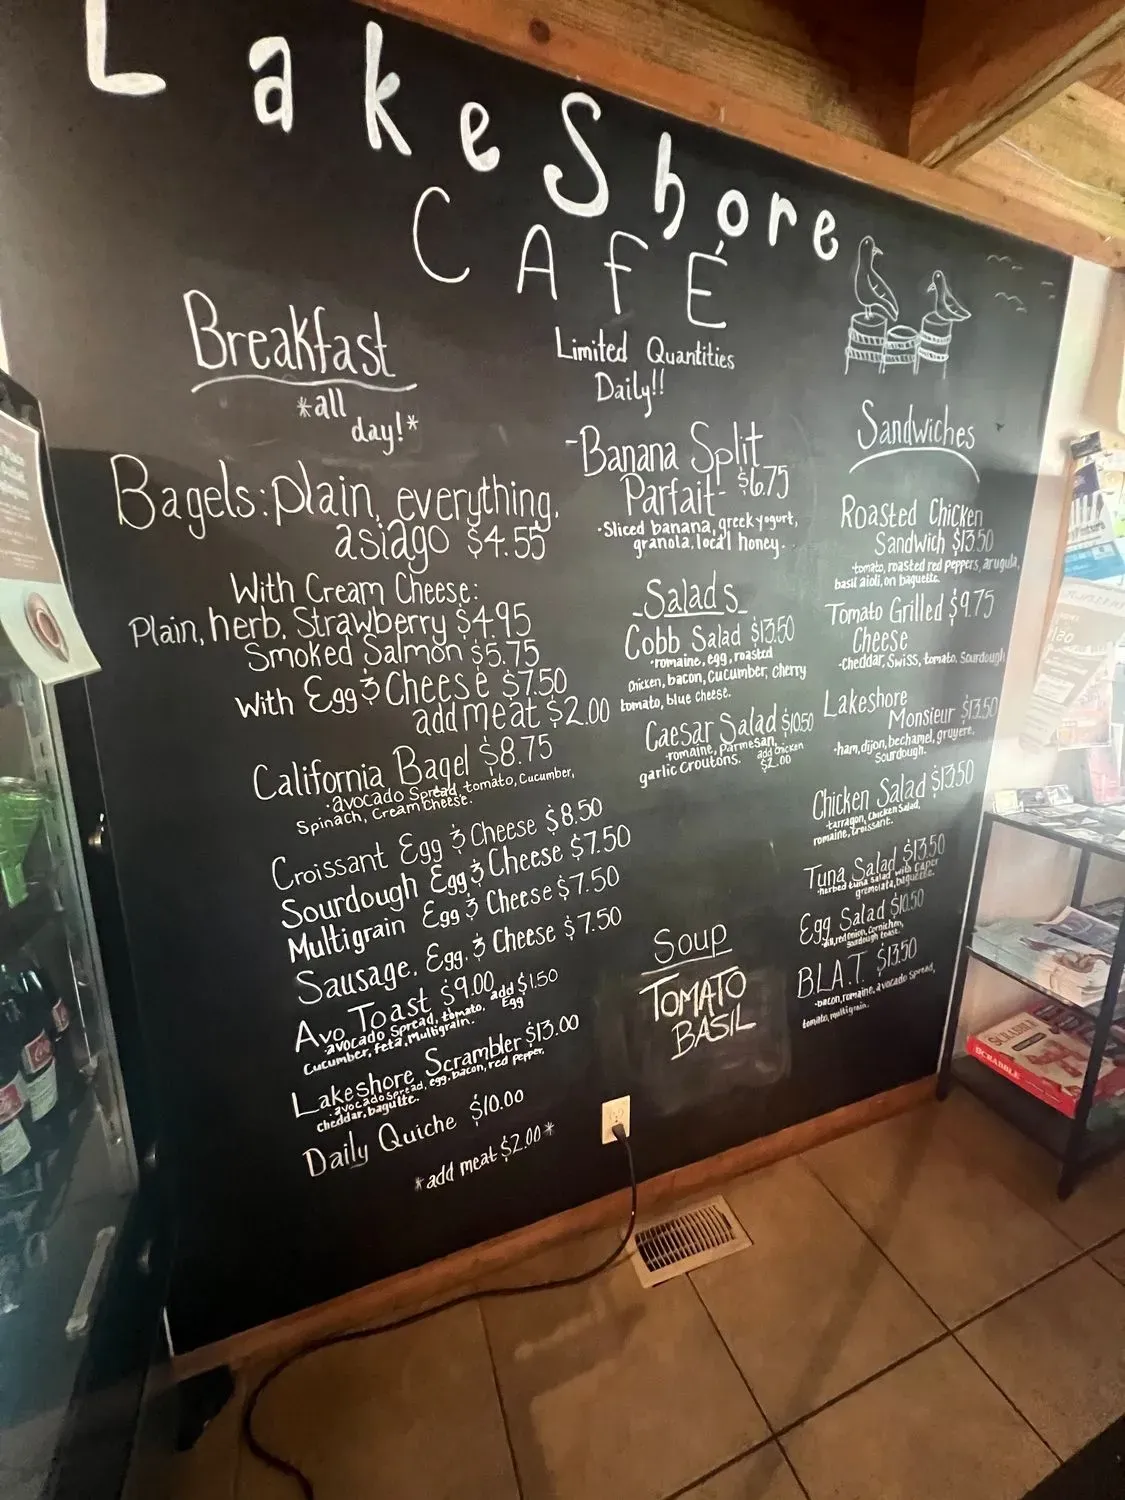 LakeShore
CAFÉ
Breakfast
*all
day!*
Bagels: plain, everything,
asiago $4.55
With Cream Cheese:
Plain, herb, Strawberry $4.95
Smoked Salmon $5.75
With Egg & Cheese $7.50
add meat $2.00
California Bagel $8.75
·avocado Spread, tomato, Cucumber,
Spinach, Cream Cheese.
Croissant Egg & Cheese $8.50
Sourdough Egg & Cheese $7.50
Multigrain Egg & Cheese $7.50
Sausage, Egg, & Cheese $7.50
Avo Toast $9.00 add $1.50
Egg
·avocado Spread, tomato,
Cucumber, feta, Multigrain.
Lakeshore Scrambler $13.00
·avocado Spread, egg, bacon, red pepper,
cheddar, baguette.
Daily Quiche $10.00
*add meat $2.00*
Limited Quantities
Daily!!
-Banana Split
Parfait- $6.75
·Sliced banana, greek yogurt,
granola, local honey.
-Salads-
Cobb Salad $13.50
·romaine, egg, roasted
Chicken, bacon, cucumber, cherry
tomato, blue cheese.
Caesar Salad $10.50
·romaine, Parmesan,
garlic Croutons.
add chicken
$2.00
Soup
TOMATO
BASIL
Sandwiches
Roasted Chicken
Sandwich $13.50
·tomato, roasted red peppers, arugula,
basil aioli, on baguette.
Tomato Grilled $9.75
Cheese
·Cheddar, Swiss, tomato, Sourdough
Lakeshore
Monsieur $13.50
·ham, dijon, bechamel, gruyere,
Sourdough.
Chicken Salad $13.50
tarragon, Chicken Salad,
romaine, croissant.
Tuna Salad $13.50
·herbed tuna salad with Caper
gremolata, baguette.
Egg Salad $10.50
dill, red onion, Cornichon,
Sourdough toast.
B.L.A.T. $13.50
·bacon, romaine, avocado Spread,
tomato, multigrain.
SCRABBLE
SCRABBLE